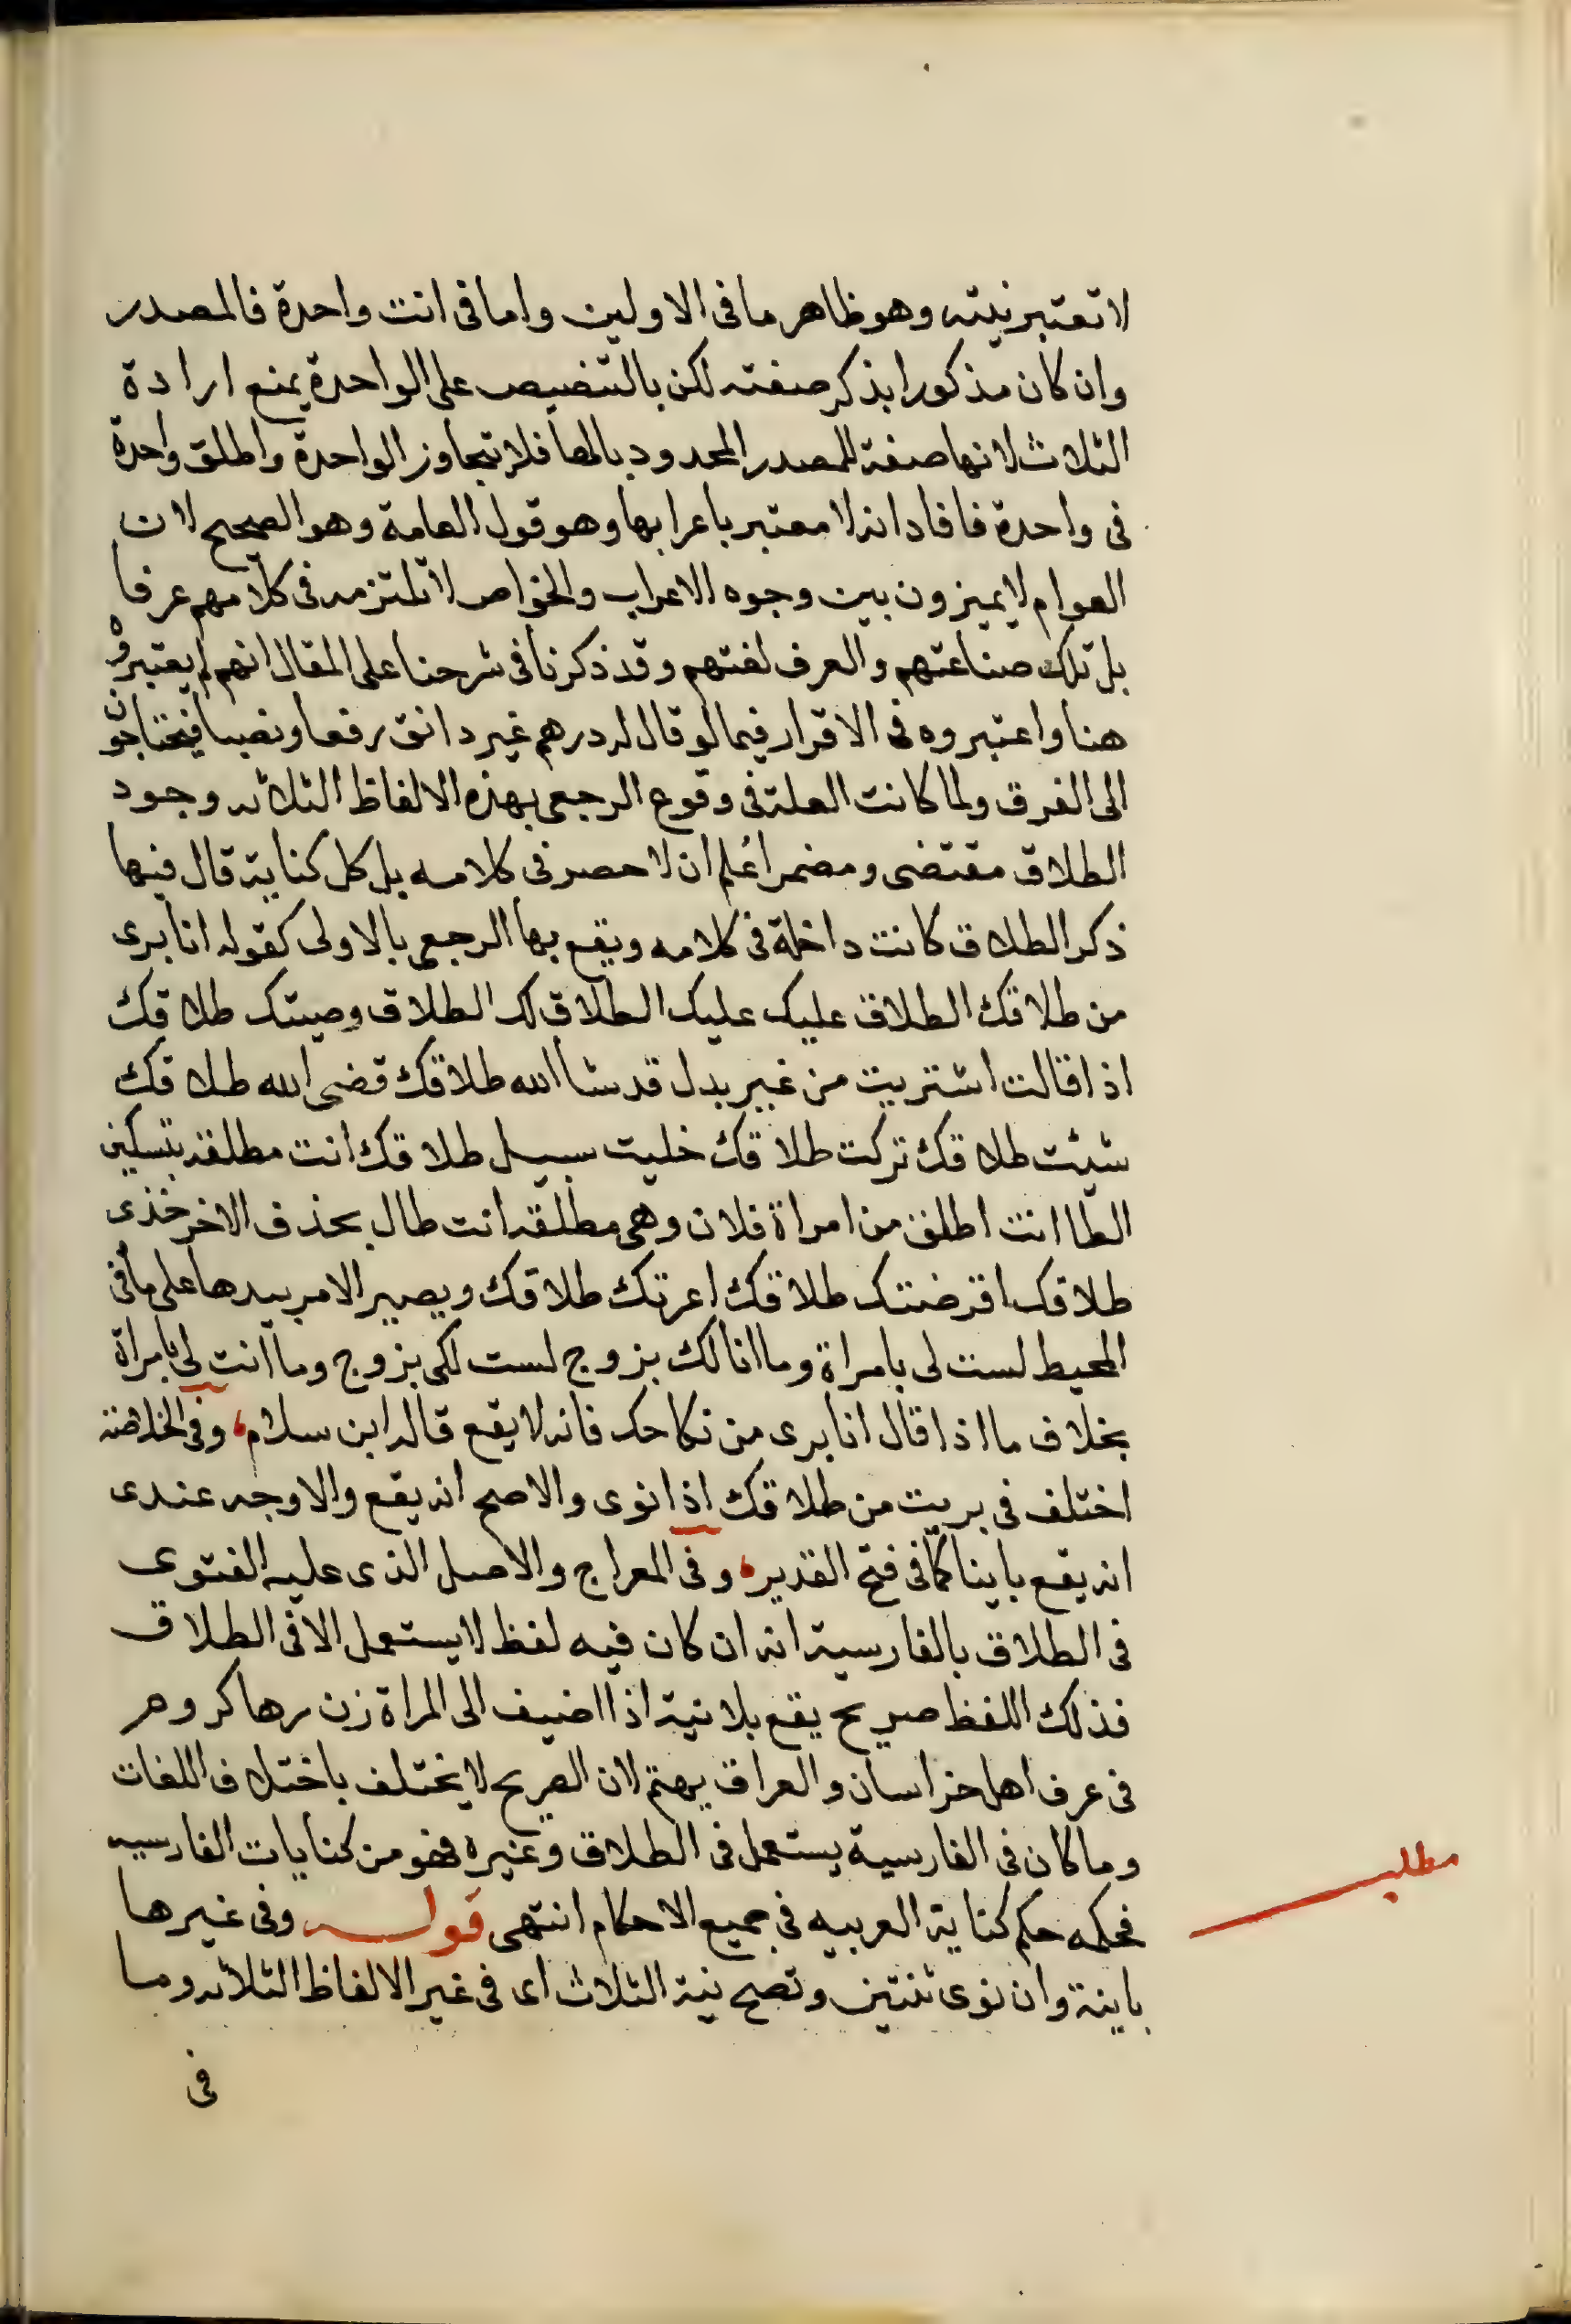 لا تعتبر نيته وهو ظاهر ما فى الاولين واما فى انت واحدة فالمصدر
وان كان مذكورا بذكر صفته لكن بالتنصيص على الواحدة يمنع ارادة
الثلاث لانها صفة للمصدر المحدود بالها فلا تتجاوز الواحدة واطلق واحدة
فى واحدة فافاد انه لا معتبر باعرابها وهو قول العامة وهو الصحيح لان
العوام لا يميزون بين وجوه الاعراب والخواص لا تلتزمه فى كلامهم عرفا
بل تلك صناعتهم والعرف لغتهم وقد ذكرنا فى شرحنا على المقال انهم لم يعتبروه
هنا واعتبروه فى الاقرار فيما لو قال له درهم غير دانق رفعا ونصبا فيحتاجون
الى الفرق ولما كانت العلة فى وقوع الرجعى بهذه الالفاظ الثلاثه وجود
الطلاق مقتضى ومضمرا علم ان لا حصر فى كلامه بل كل كناية قال فيها
ذكر الطلاق كانت داخلة فى كلامه ويقع بها الرجعى بالاولى كقوله انا برى
من طلاقك الطلاق عليك عليك الطلاق لك الطلاق وهبتك طلاقك
اذا قالت اشتريت من غير بدل قد شا الله طلاقك قضى الله طلاقك
شئت طلاقك تركت طلاقك خليت سبيل طلاقك انت مطلقه بتسكين
الطا انت اطلق من امراة فلان وهى مطلقه انت طال بحذف الاخر خذى
طلاقك اقرضتك طلاقك اعرتك طلاقك ويصير الامر بيدها على ما فى
المحيط لست لى بامراة وما انا لك بزوج لست لكى بزوج وما انت لى بامراة
بخلاف ما اذا قال انا برى من نكاحك فانه لا يقع قاله ابن سلام، وفى الخلاصة
اختلف فى بريت من طلاقك اذا نوى والاصح انه يقع والاوجه عندى
انه يقع باينا كما فى فتح القدير، وفى المعراج والاصل الذى عليه الفتوى
فى الطلاق بالفارسية انه ان كان فيه لفظ لا يستعمل الا فى الطلاق
فذلك اللفظ صريح يقع بلا نية اذا اضيف الى المراة زن رها كروهر
فى عرف اهل خراسان والعراق بهتم لان الصريح لا يختلف باختلاف اللغات
وما كان فى الفارسية يستعمل فى الطلاق وغيره فهو من كنايات الفارسيه
مطلب
فحكمه حكم كناية العربيه فى جميع الاحكام انتهى قوله وفى غيرها
باينة وان نوى ثنتين وتصح نية الثلاث اى فى غير الالفاظ الثلاثه وما
فى